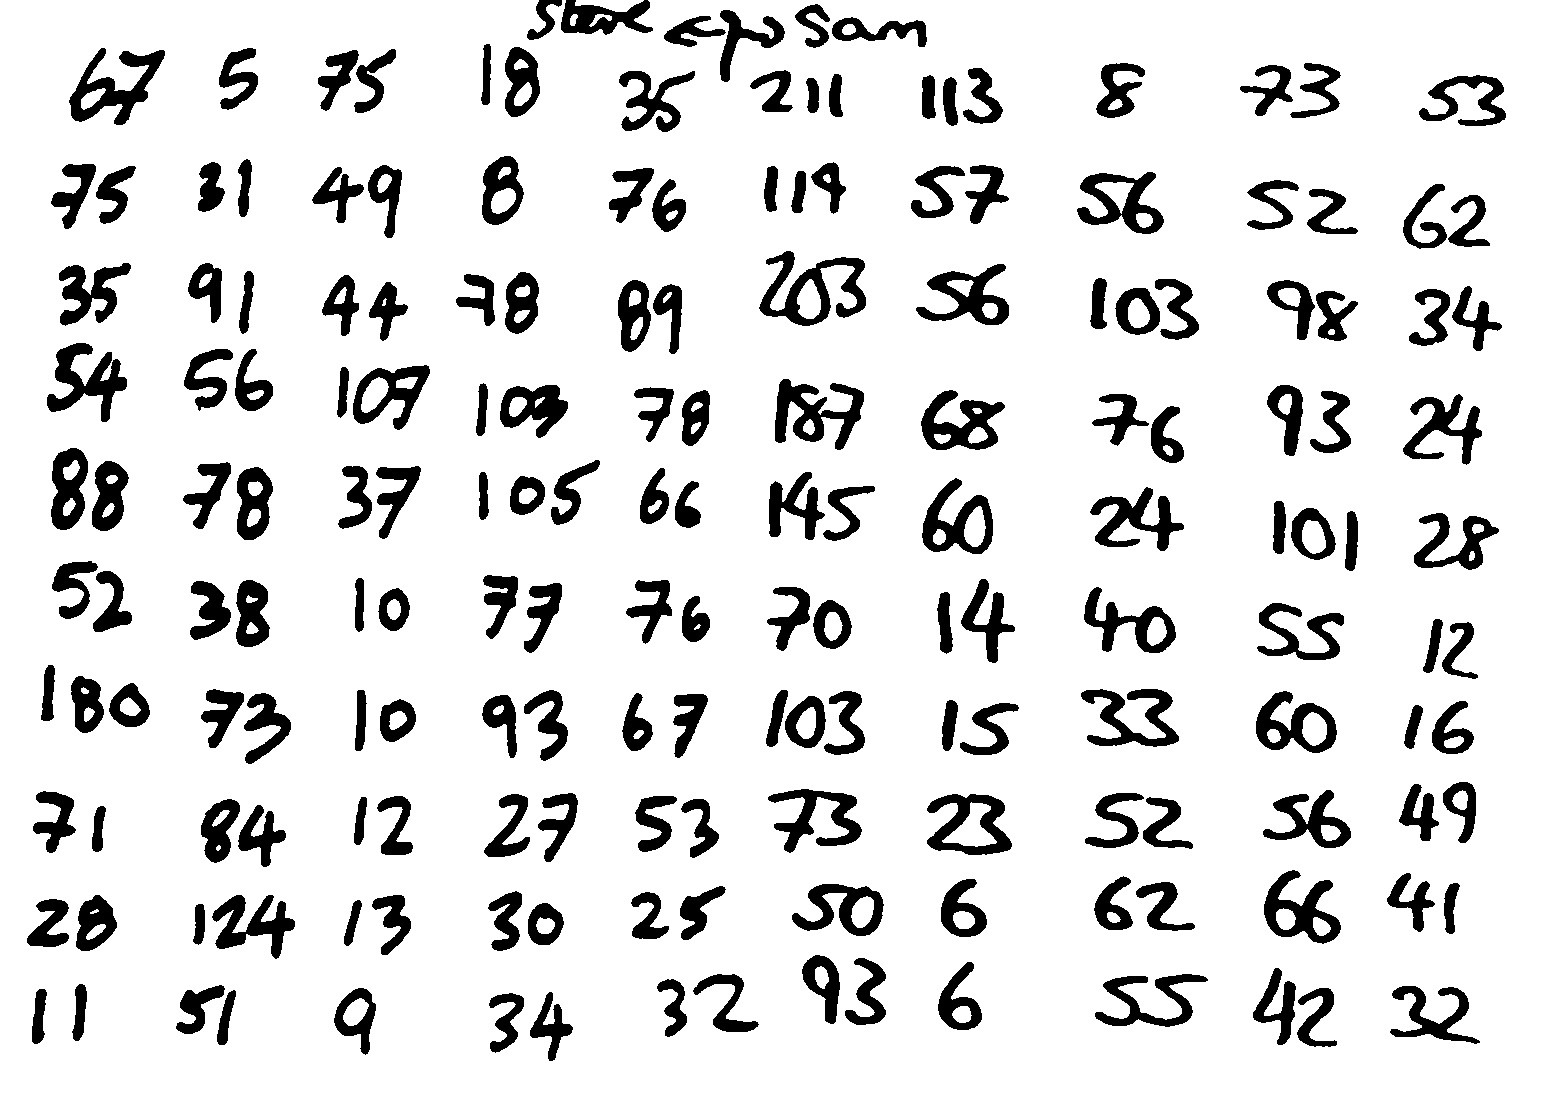 Steve <-|-> Sam
67 5 75 18 35 211 113 8 73 53
75 31 49 8 76 119 57 56 52 62
35 91 44 78 89 203 56 103 98 34
54 56 107 103 78 187 68 76 93 24
88 78 37 105 66 145 60 24 101 28
52 38 10 77 76 70 14 40 55 12
180 73 10 93 67 103 15 33 60 16
71 84 12 27 53 73 23 52 56 49
28 124 13 30 25 50 6 62 66 41
11 51 9 34 32 93 6 55 42 32